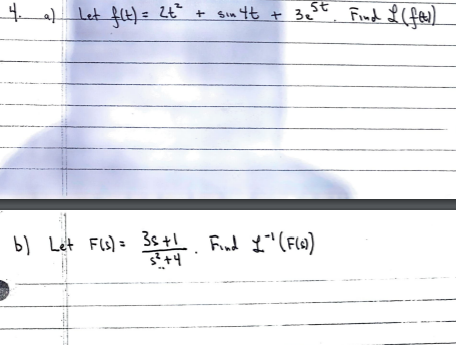 4. a) Let f(t) = 2t² + sin 4t + 3e^5t. Find ℒ(f(t))
b) Let F(s) = (3s+1)/(s²+4). Find ℒ⁻¹(F(s))